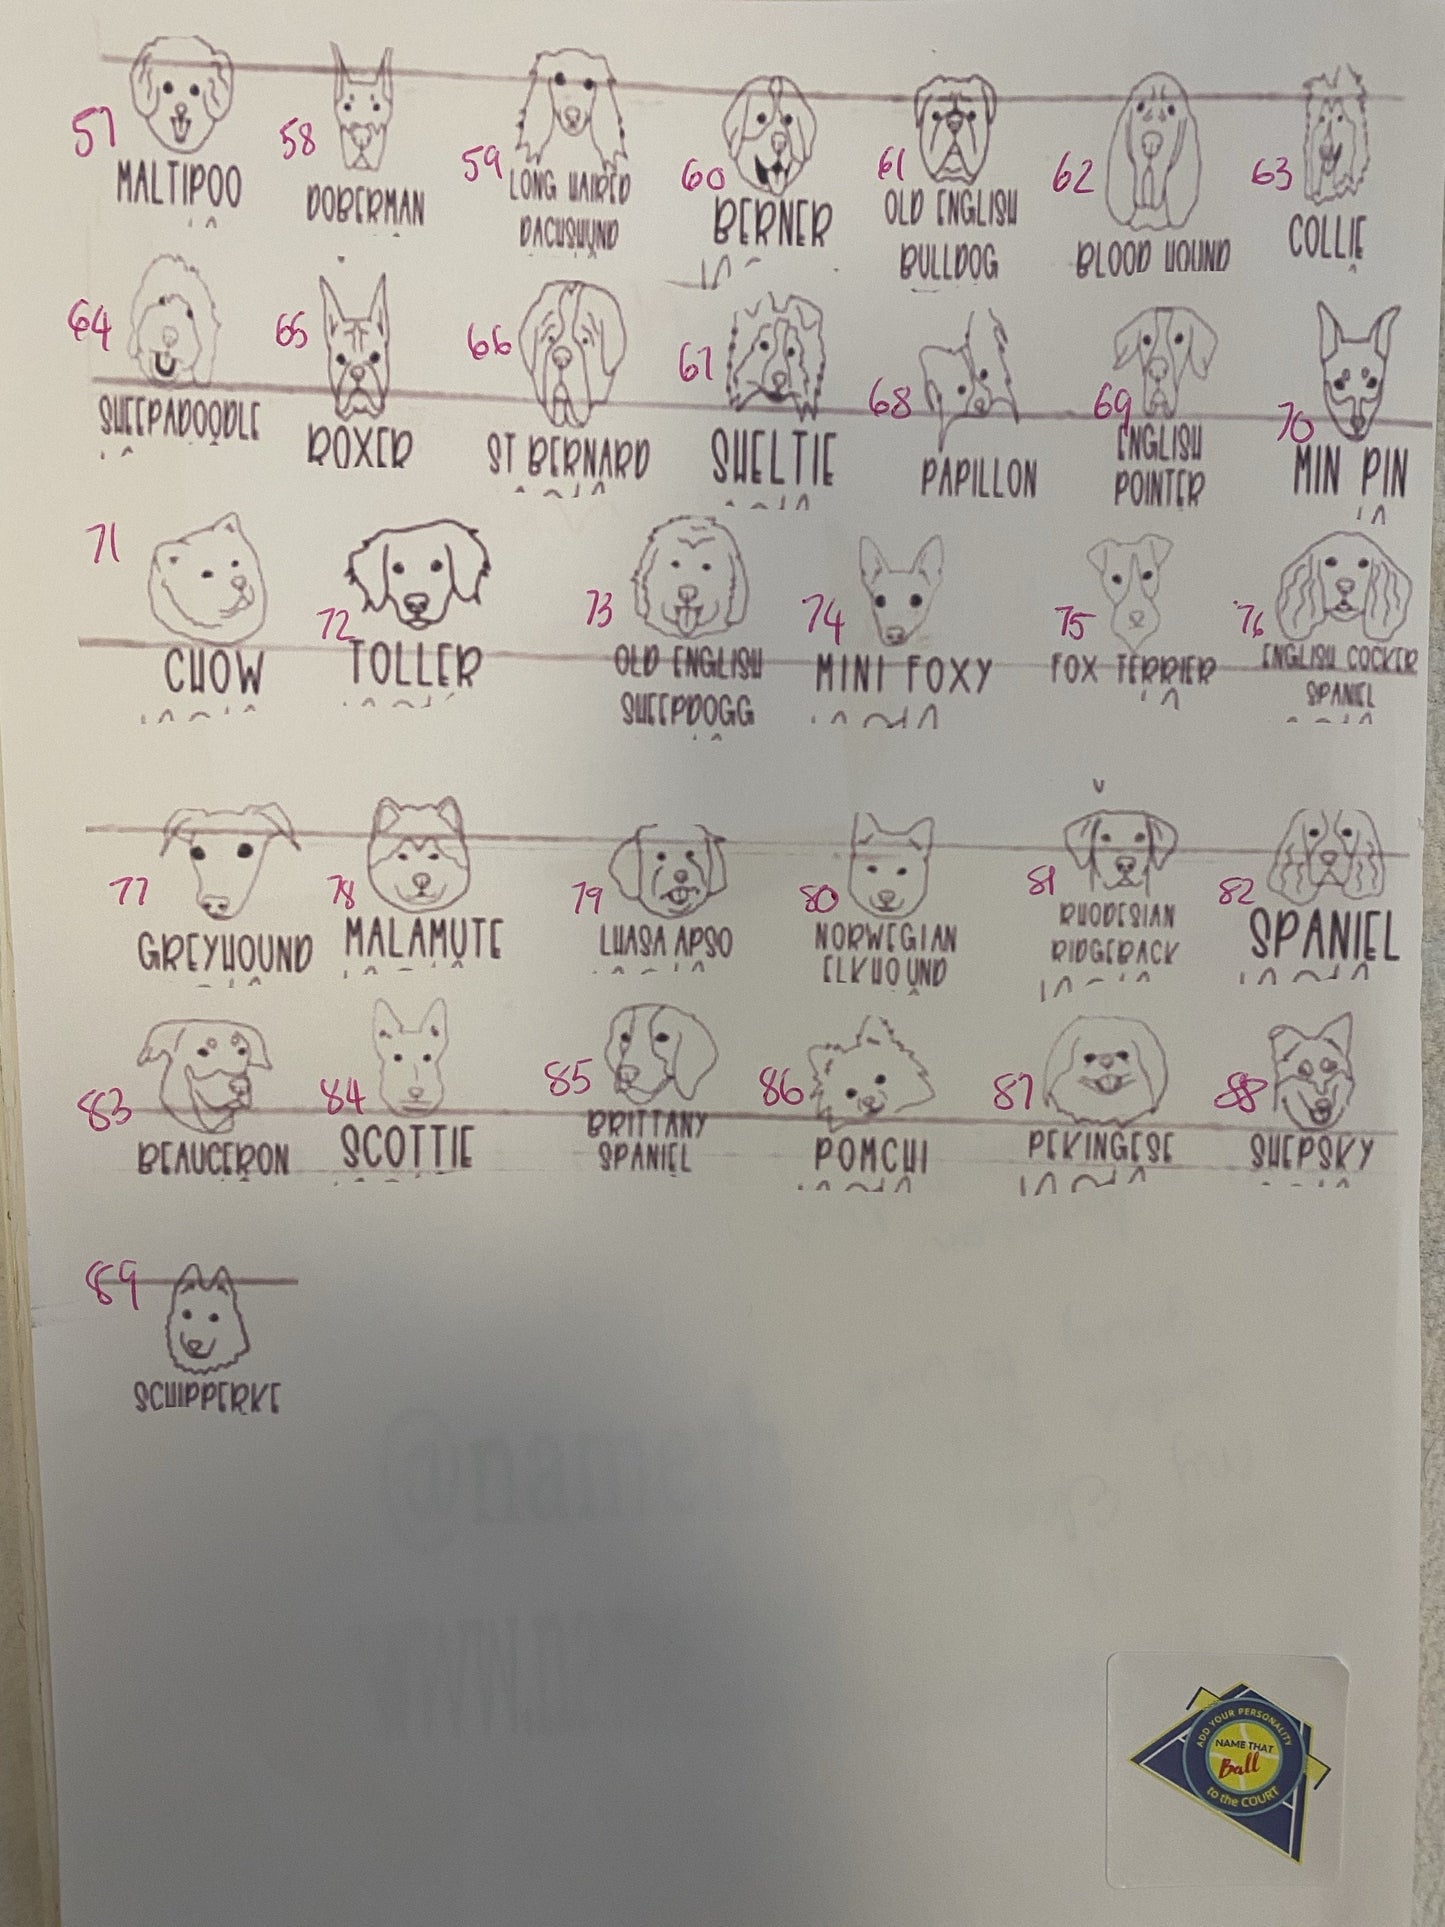 57
MALTIPOO
58
DOBERMAN
59
LONG HAIRED
DACHSHUND
60
BERNER
61
OLD ENGLISH
BULLDOG
62
BLOOD HOUND
63
COLLIE
64
SHEEPADOODLE
65
BOXER
66
ST BERNARD
67
SHELTIE
68
PAPILLON
69
ENGLISH
POINTER
70
MIN PIN
71
CHOW
72
TOLLER
73
OLD ENGLISH
SHEEPDOGG
74
MINI FOXY
75
FOX TERRIER
76
ENGLISH COCKER
SPANIEL
77
GREYHOUND
78
MALAMUTE
79
LHASA APSO
80
NORWEGIAN
ELKHOUND
81
RHODESIAN
RIDGEBACK
82
SPANIEL
83
BEAUCERON
84
SCOTTIE
85
BRITTANY
SPANIEL
86
POMCHI
87
PEKINGESE
88
SHEPSKY
89
SCHIPPERKE
ADD YOUR PERSONALITY
NAME THAT
Ball
to the COURT